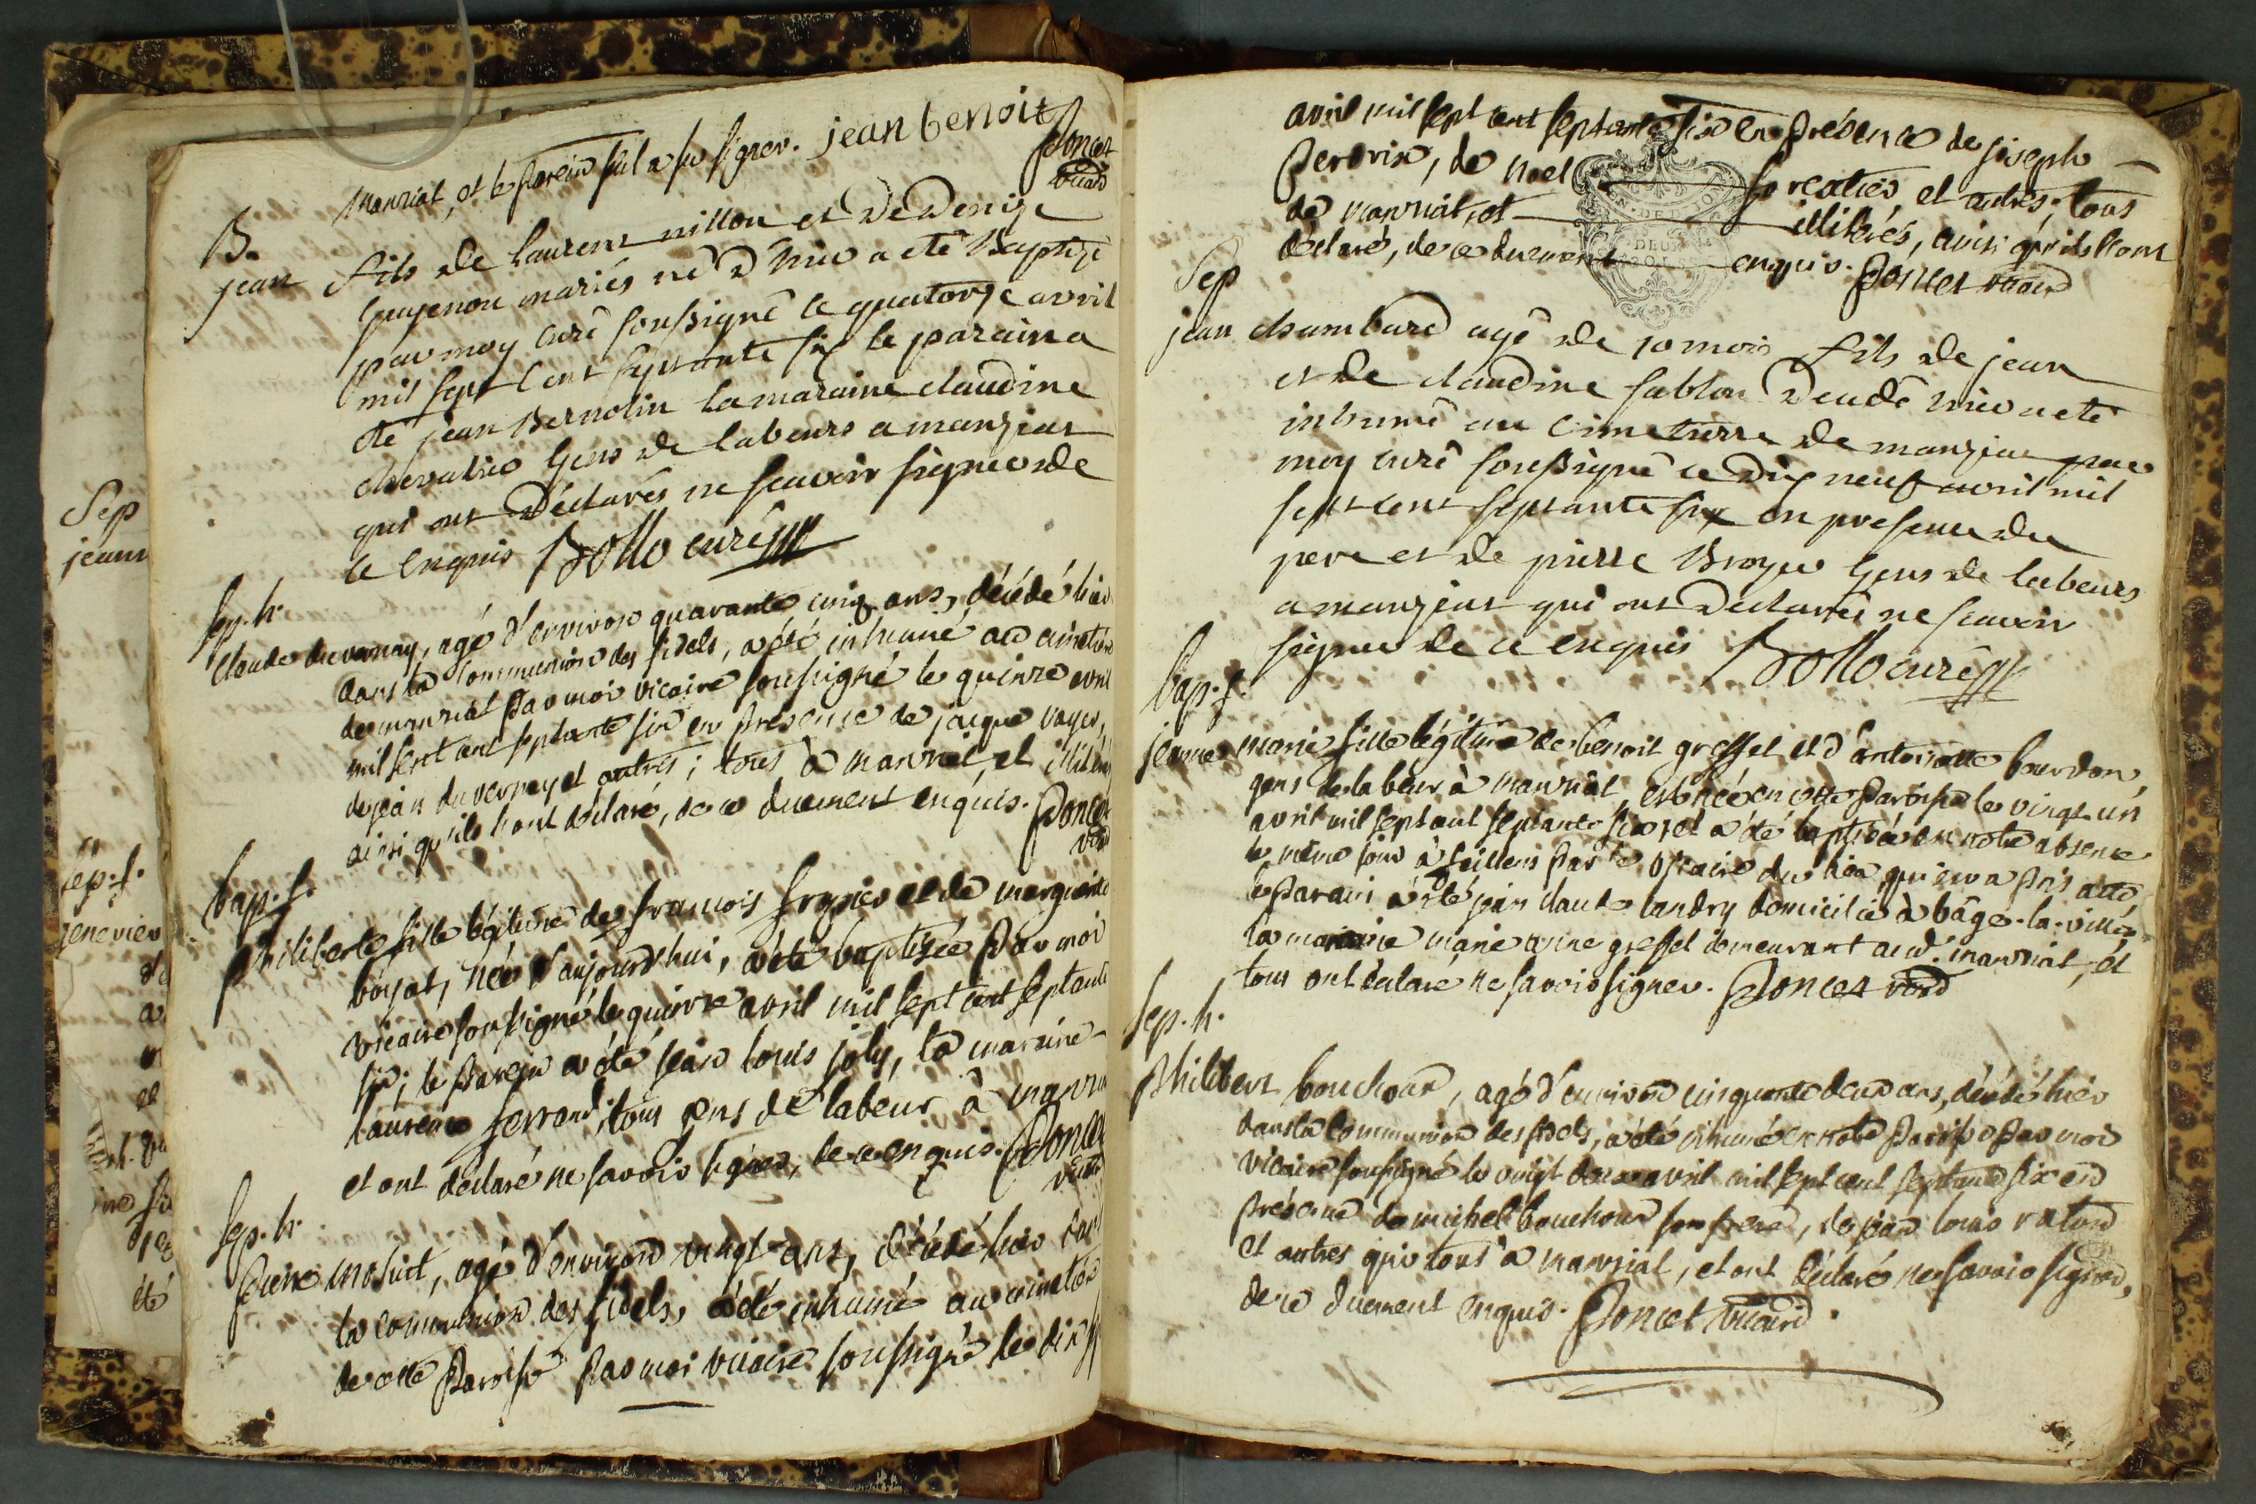 manziat, et le parein seul a su signer. jean benoit
Poncet
vicaire
B.
jean fils de laurent nillon et de Denise
guyenon mariés né d'hier a eté Baptizé
par moy curé soussigné le quatorze avril
mil sept cent septante six le parain a
été jean Bernolin la maraine claudine
chevalier gens de labeurs a manziat
qui ont Déclarés ne scavoir signer de
ce enquis Bollo curé
Sep. h.
Claude duvernay, agé d'environ quarante cinq ans, décédé hier
dans la Communion des fidels, a été inhumé au cimetière
de manziat par moi vicaire soussigné le quinze avril
mil sept cent septante six en présence de jacque voyer,
de jean duvernay et autres; tous à manziat, et illiterés
ainsi qu'ils l'ont déclaré, de ce duement enquis. Poncet
vicaire
bap. f.
philiberte fille légitime de francois frypier et de marguerite
boyat, née d'aujourd'hui, a été baptisée par moi
vicaire soussigné le quinze avril mil sept cent septante
six; le parein a été jean louis joly, la mareine
laurence ferrand; tous gens de labeur à manziat
et ont déclaré ne savoir signer, de ce enquis. Poncet
vicaire
Sep. h.
Pierre moluit, agé d'environ vingt ans, décédé hier dans
la communion des fidels, a été inhumé au cimetière
de cette paroisse par moi vicaire soussigné le dix
avril mil sept cent septante six en présence de joseph
perdrix, de noel forcatier, et autres, tous
de manziat, et illiterés, ainsi qu'ils l'ont
déclaré, de ce duement enquis. Poncet vicaire
Sep
jean chambard agé de 10 mois fils de jean
et de claudine sablon décédé hier a eté
inhumé au cimetierre de manziat par
moy curé soussigné ce dix neuf avril mil
sept cent septante six en presence du
pere et de pierre Broyer gens de labeurs
a manziat qui ont declarés ne scavoir
signer de ce enquis Bollo curé
bap. f.
jeanne marie fille légitime de benoit greffet et d'antoinette bourdon,
gens de labeur à manziat, est née en cette paroisse le vingt un
avril mil sept cent septante six, et a été baptisée en notre absence
le même jour à feillens par le vicaire du lieu, qui en a pris acte
le parain a été jean claude landry domicilié à bâgé-la-ville,
la maraine marie anne greffet demeurant aud. manziat, et
tous ont déclaré ne savoir signer. Poncet vicaire
Sep. h.
Philibert bouchoux, agé d'environ cinquante deux ans, décédé hier
dans la Communion des fidels, a été inhumé en notre paroisse par moi
vicaire soussigné le vingt deux avril mil sept cent septante six en
présence de michel bouchoux son frere, de jean louis
et autres qui tous à manziat, et ont déclaré ne savoir signer,
de ce duement enquis. Poncet vicaire.
Sep
jeann
sep. f.
geneviev
été